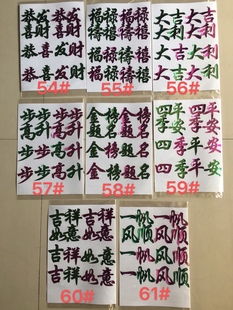 恭发恭发
喜财喜财
恭发恭发
喜财喜财
54#
福禄福禄
祷禧祷禧
福禄福禄
祷禧祷禧
55#
大吉
大利
大吉
大利
56#
步步步步
高升高升
步步步步
高升高升
57#
金榜金榜
题名题名
金榜金榜
题名题名
58#
四平
季安
四平
季安
59#
吉祥吉祥
如意如意
吉祥吉祥
如意如意
60#
一帆一帆
风顺风顺
一帆一帆
风顺风顺
61#